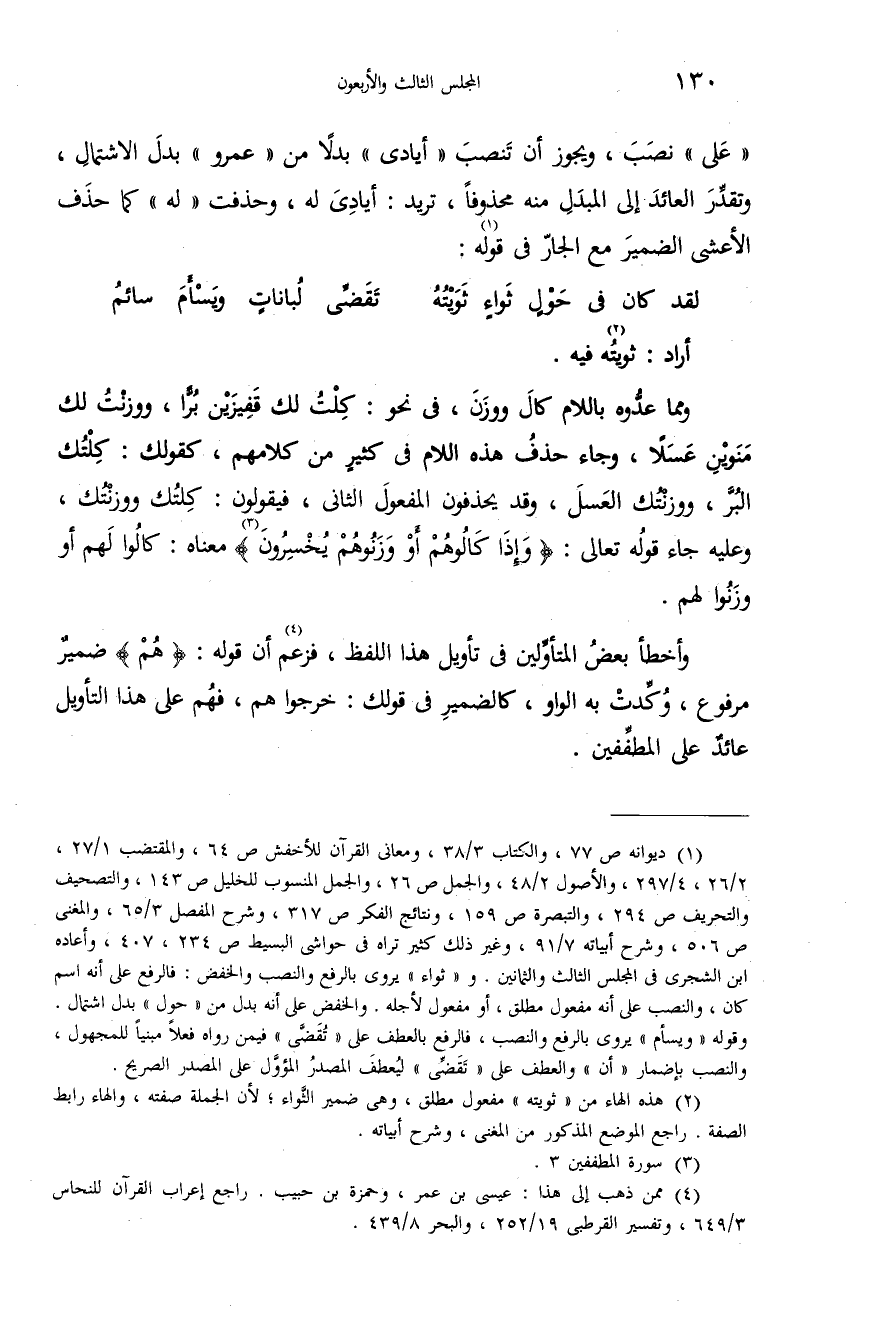 ١٣٠ المجلس الثالث والأربعون
« عَلى » نصَبَ ، ويجوز أن تَنصبَ « أيادى » بدلًا من « عمرو » بدلَ الاشتمالِ ،
وتقدِّرَ العائدَ إلى المبدَلِ منه محذوفاً ، تريد : أيادِىَ له ، وحذفت « له » كما حذَف
الأعشى الضميرَ مع الجارّ فى قوله (١) :
لقد كان فى حَوْلٍ ثَواءٍ ثَوَيْتُهُ تَقَضِّى لُباناتٍ ويَسْأَمَ سائمُ
أراد : ثويتُه (٢) فيه .
ومما عدُّوه باللام كالَ ووزَنَ ، فى نحو : كِلْتُ لك قَفِيزَيْن بُرًّا ، ووزنْتُ لك
مَنَوَيْنِ عَسَلًا ، وجاء حذفُ هذه اللام فى كثيرٍ من كلامهم ، كقولك : كِلْتُك
البُرَّ ، ووزنْتُك العَسلَ ، وقد يحذفون المفعولَ الثانى ، فيقولون : كِلتُك ووزنْتُك ،
وعليه جاء قولُه تعالى : ﴿ وَإِذَا كَالُوهُمْ أَوْ وَزَنُوهُمْ يُخْسِرُونَ (٣) ﴾ معناه : كالُوا لَهم أو
وزَنُوا لهم .
وأخطأ بعضُ المتأوِّلين فى تأويل هذا اللفظ ، فزعم (٤) أن قوله : ﴿ هُمْ ﴾ ضميرٌ
مرفوع ، وُكِّدتْ به الواو ، كالضميرِ فى قولك : خرجوا هم ، فهُم على هذا التأويل
عائدٌ على المطفِّفين .
(١) ديوانه ص ٧٧ ، والكتاب ٣٨/٣ ، ومعانى القرآن للأخفش ص ٦٤ ، والمقتضب ٢٧/١ ،
٢٦/٢ ، ٢٩٧/٤ ، والأصول ٤٨/٢ ، والجمل ص ٢٦ ، والجمل المنسوب للخليل ص ١٤٣ ، والتصحيف
والتحريف ص ٢٩٤ ، والتبصرة ص ١٥٩ ، ونتائج الفكر ص ٣١٧ ، وشرح المفصل ٦٥/٣ ، والمغنى
ص ٥٠٦ ، وشرح أبياته ٩١/٧ ، وغير ذلك كثير تراه فى حواشى البسيط ص ٢٣٤ ، ٤٠٧ ، وأعاده
ابن الشجرى فى المجلس الثالث والثمانين . و « ثواء » يروى بالرفع والنصب والخفض : فالرفع على أنه اسم
كان ، والنصب على أنه مفعول مطلق ، أو مفعول لأجله . والخفض على أنه بدل من « حول » بدل اشتمال .
وقوله « ويسأم » يروى بالرفع والنصب ، فالرفع بالعطف على « تُقَضَّى » فيمن رواه فعلاً مبنياً للمجهول ،
والنصب بإضمار « أن » والعطف على « تَقَضِّى » ليُعطفَ المصدرُ المؤوَّل على المصدر الصريح .
(٢) هذه الهاء من « ثويته » مفعول مطلق ، وهى ضمير الثَّواء ؛ لأن الجملة صفته ، والهاء رابط
الصفة . راجع الموضع المذكور من المغنى ، وشرح أبياته .
(٣) سورة المطففين ٣ .
(٤) ممن ذهب إلى هذا : عيسى بن عمر ، وحمزة بن حبيب . راجع إعراب القرآن للنحاس
٦٤٩/٣ ، وتفسير القرطبى ٢٥٢/١٩ ، والبحر ٤٣٩/٨ .